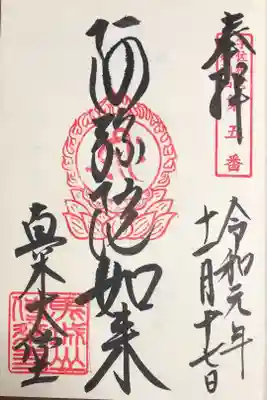 奉拝
五番
阿弥陀如来
真木大堂
令和元年
十一月十七日